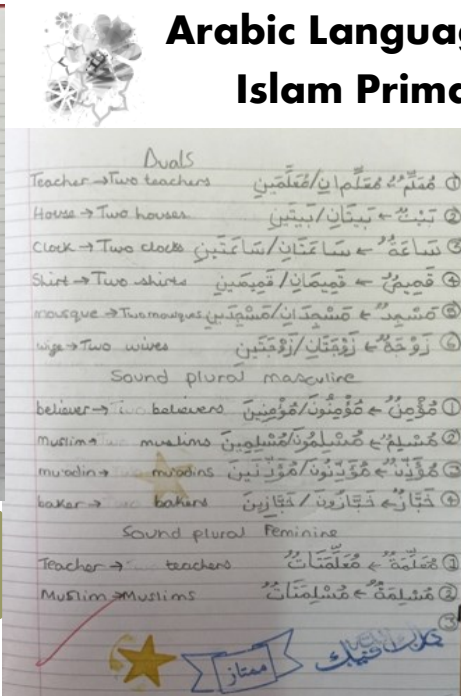 Arabic Languag
Islam Prima
Duals
Teacher → Two teachers ① مُعَلِّمٌ ← مُعَلِّمَانِ/مُعَلِّمَينِ
House → Two houses ② بَيْتٌ ← بَيتَانِ/بَيتَينِ
Clock → Two clocks ③ سَاعَةٌ ← سَاعَتَانِ/سَاعَتَينِ
Shirt → Two shirts ④ قَمِيصٌ ← قَمِيصَانِ/قَمِيصَينِ
mosque → Two mosques ⑤ مَسْجِدٌ ← مَسْجِدَانِ/مَسْجِدَينِ
wife → Two wives ⑥ زَوْجَةٌ ← زَوْجَتَانِ/زَوْجَتَينِ
Sound plural masculine
believer → Two believers ① مُؤْمِنٌ ← مُؤْمِنُونَ/مُؤْمِنِينَ
muslim → Two muslims ② مُسْلِمٌ ← مُسْلِمُونَ/مُسْلِمِينَ
muadin → Two muadins ③ مُؤَذِّنٌ ← مُؤَذِّنُونَ/مُؤَذِّنِينَ
baker → Two bakers ④ خَبَّازٌ ← خَبَّازُونَ/خَبَّازِينَ
Sound plural Feminine
Teacher → Two teachers ① مُعَلِّمَةٌ ← مُعَلِّمَاتٌ
Muslim → Muslims ② مُسْلِمَةٌ ← مُسْلِمَاتٌ
③
ممتاز